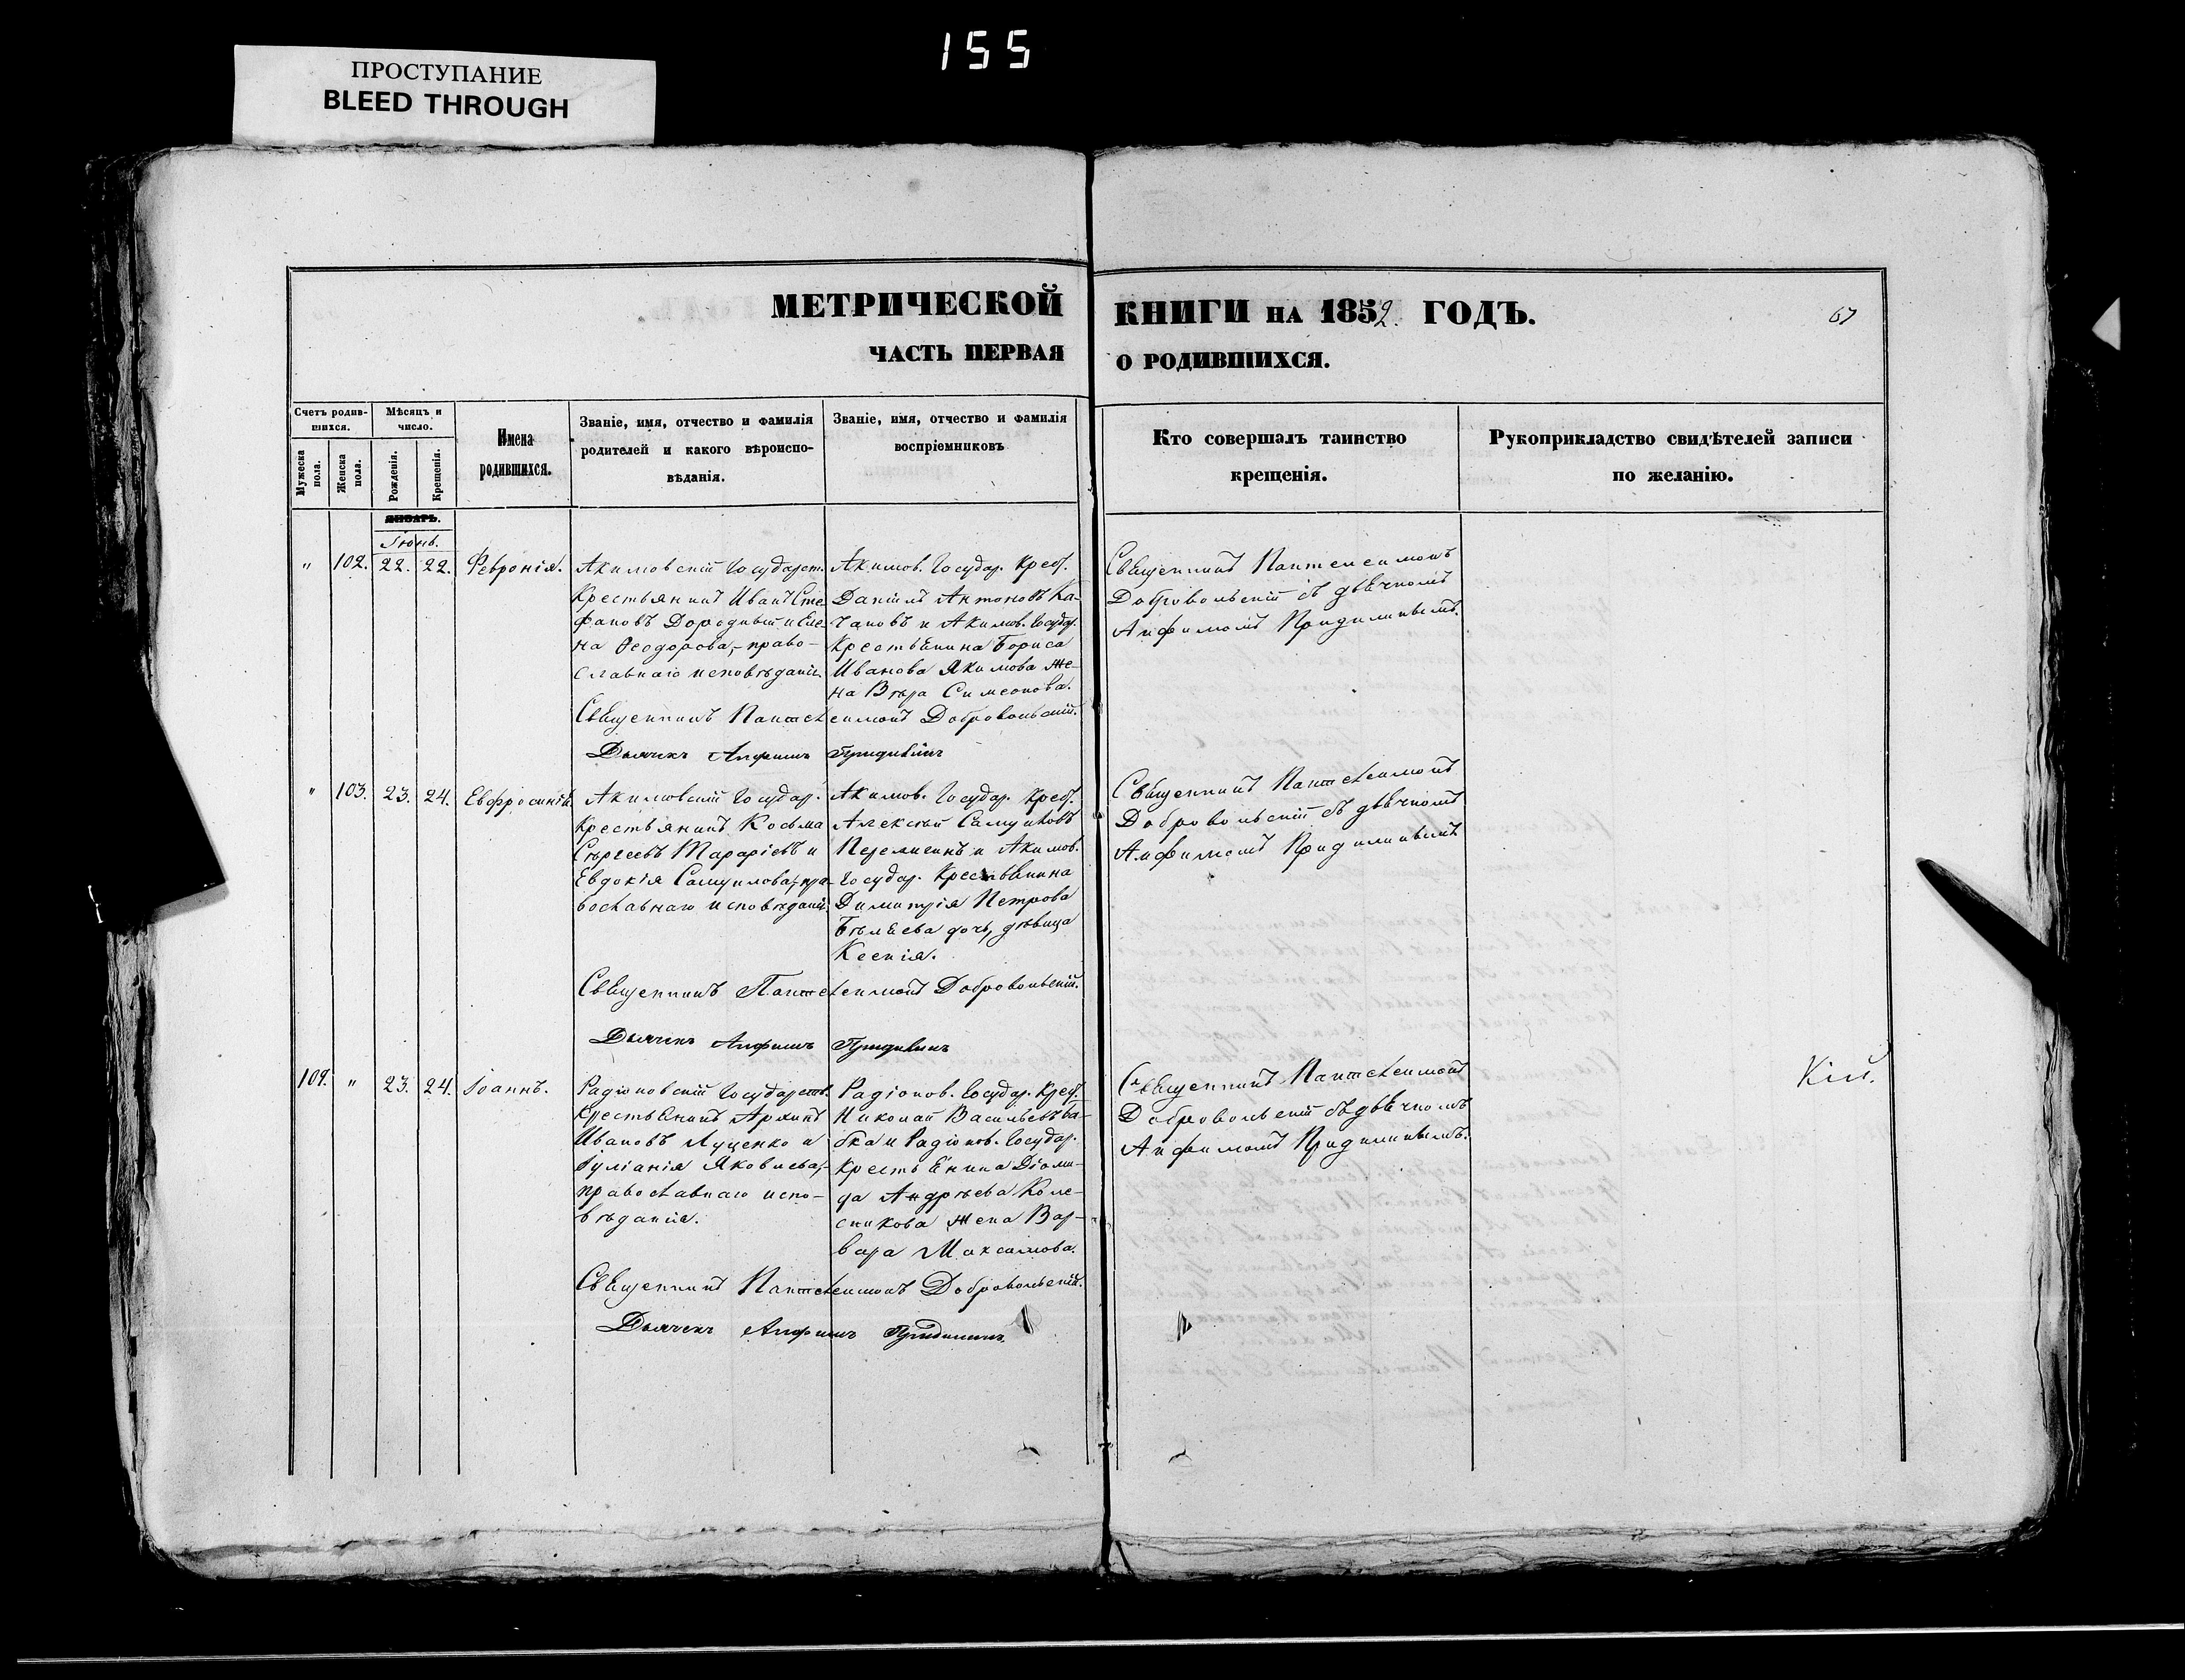 155
ПРОСТУПАНИЕ
BLEED THROUGH
МЕТРИЧЕСКОЙ КНИГИ НА 1852. ГОДЪ.
67
ЧАСТЬ ПЕРВАЯ О РОДИВШИХСЯ.
Счетъ родив-
шихся.
Мужеска пола.
Женска пола.
Мѣсяцъ и
число.
Рожденія.
Крещенія.
Имена
родившихся.
Званіе, имя, отчество и фамилія
родителей и какого вѣроиспо-
вѣданія.
Званіе, имя, отчество и фамилія
воспріемниковъ
Кто совершалъ таинство
крещенія.
Рукоприкладство свидѣтелей записи
по желанію.
ЯНВАРЬ.
Іюнь.
" 102. 22. 22. Февронія.
Акимовскій Государст.
Крестьянинъ Иванъ Сте
фановъ Дородный и Еле
на Ѳеодорова,- право-
славнаго исповѣданія.
Акимов. Государ. Крест.
Даніилъ Антоновъ Ка-
чановъ и Акимов. Государ.
Крестьянина Бориса
Иванова Якимова же-
на Вѣра Симеонова.
Священникъ Пантелеимонъ
Добровольскій съ дьячкомъ
Анфимомъ
Священникъ Пантелеимонъ Добровольскій.
Дьячекъ Анфимъ
" 103. 23. 24. Евфросинія
Акимовскій Государ.
Крестьянинъ Косьма
Сергеевъ Тараріевъ и
Евдокія Самуилова,- пра-
вославнаго исповѣданія.
Акимов. Государ. Крест.
Алексѣй Самуиловъ
и Акимов.
Государ. Крестьянина
Димитрія Петрова
Бѣляева дочь, дѣвица
Ксенія.
Священникъ Пантелеимонъ
Добровольскій съ дьячкомъ
Анфимомъ
Священникъ Пантелеимонъ Добровольскій.
Дьячекъ Анфимъ
109. " 23. 24. Іоаннъ.
Радіоновскій Государств.
Крестьянинъ
Ивановъ Луценко и
Іуліанія Яковлева,-
православнаго испо-
вѣданія.
Радіонов. Государ. Крест.
Николай Васильевъ Ба-
бка и Радіонов. Государ.
Крестьянина Діоми-
да Андрѣева Коле-
сникова жена Вар-
вара Максимова.
Священникъ Пантелеимонъ
Добровольскій съ дьячкомъ
Анфимомъ
Священникъ Пантелеимонъ Добровольскій.
Дьячекъ Анфимъ